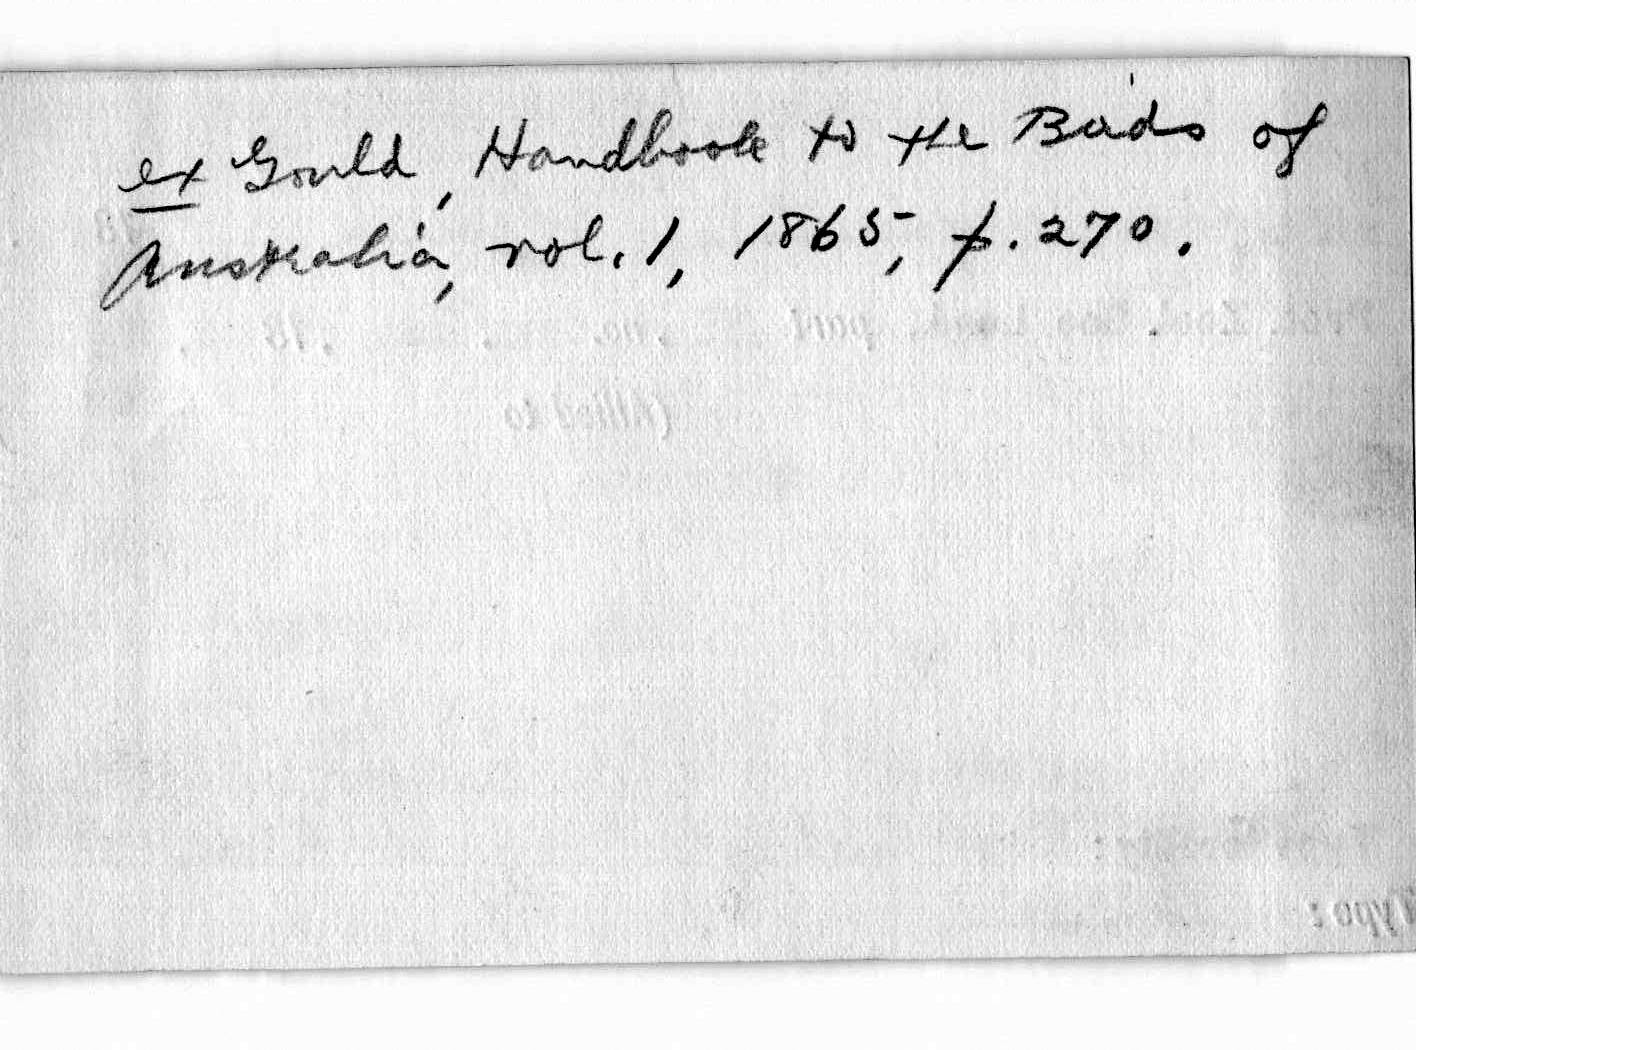 ex Gould, Handbook to the Birds of
Australia, vol. 1, 1865, p. 270.
(Allied to
Type: